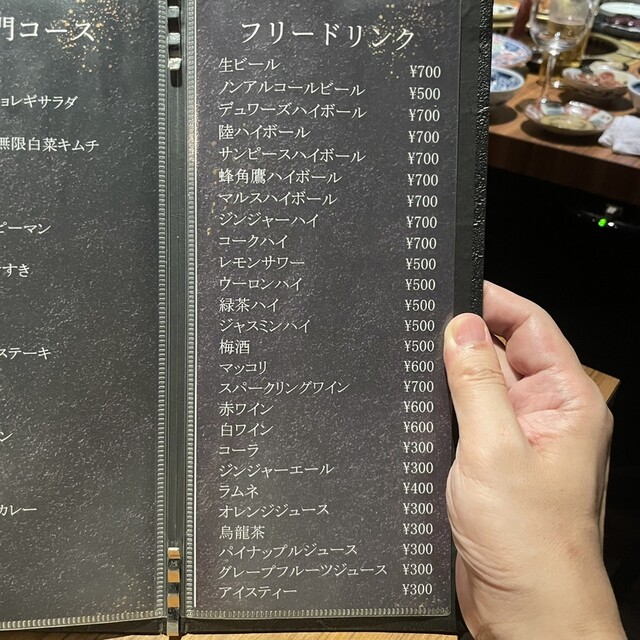 門コース
ョレギサラダ
無限白菜キムチ
ピーマン
すき
ステーキ
ン
カレー
フリードリンク
生ビール ¥700
ノンアルコールビール ¥500
デュワーズハイボール ¥700
陸ハイボール ¥700
サンピースハイボール ¥700
蜂角鷹ハイボール ¥700
マルスハイボール ¥700
ジンジャーハイ ¥700
コークハイ ¥700
レモンサワー ¥500
ウーロンハイ ¥500
緑茶ハイ ¥500
ジャスミンハイ ¥500
梅酒 ¥500
マッコリ ¥600
スパークリングワイン ¥700
赤ワイン ¥600
白ワイン ¥600
コーラ ¥300
ジンジャーエール ¥300
ラムネ ¥400
オレンジジュース ¥300
烏龍茶 ¥300
パイナップルジュース ¥300
グレープフルーツジュース ¥300
アイスティー ¥300